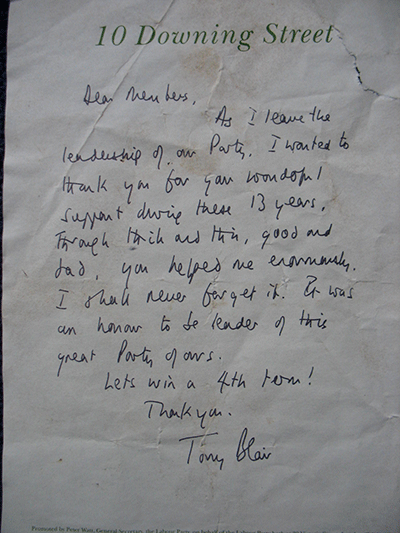 10 Downing Street
Dear Members,
As I leave the
leadership of our Party, I wanted to
thank you for your wonderful
support during these 13 years.
Through thick and thin, good and
bad, you helped me enormously.
I shall never forget it. It was
an honour to be leader of this
great Party of ours.
Lets win a 4th term!
Thank you.
Tony Blair
Promoted by Peter Watt, General Secretary, the Labour Party, on behalf of the Labour Party,